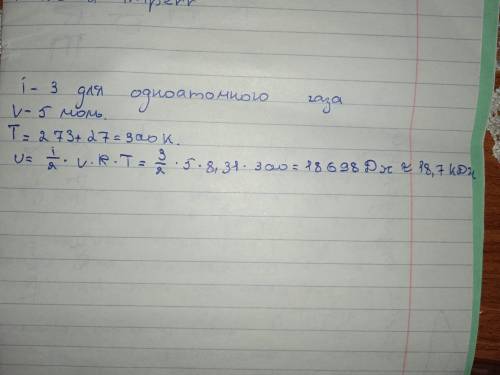 i - 3 для одноатомного газа
V - 5 моль.
T = 273 + 27 = 300 K.
U = i/2 · V · R · T = 3/2 · 5 · 8,31 · 300 = 18698 Дж ≈ 18,7 кДж